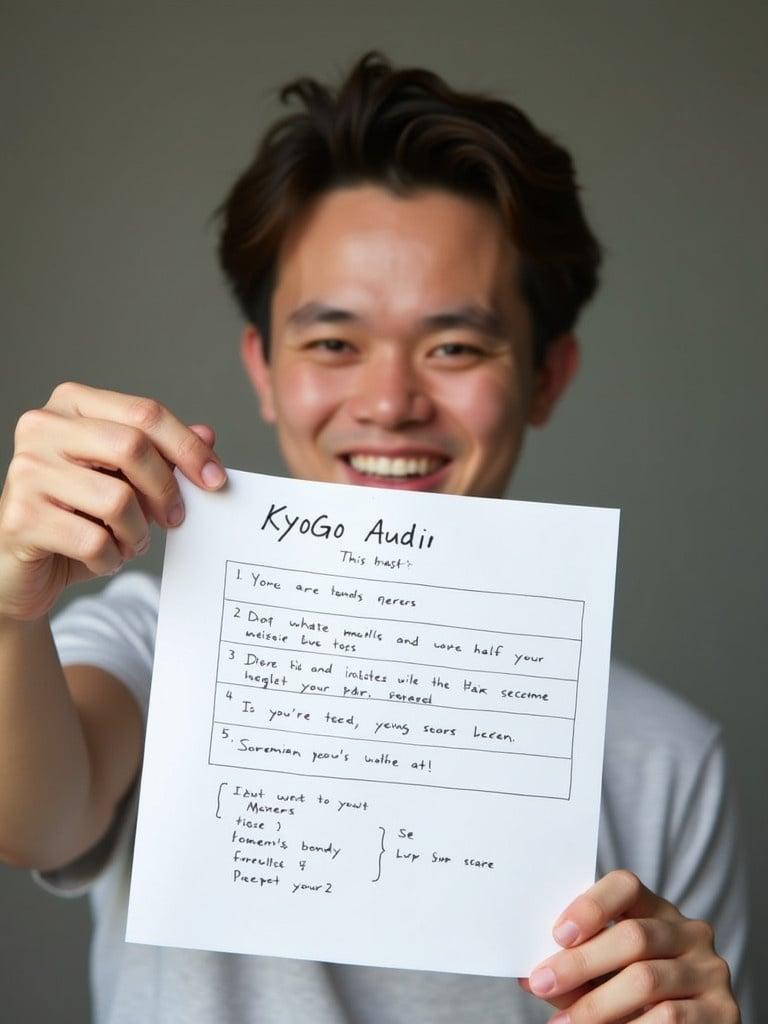 KyoGo Audir
This hast:
1. Yome are tonds nerers
2 Dot whate mnells and wore half your
meizoie bue tops
3 Diere his and instates wile the Hak secceme
heeglet your
4 Is you're teed, yeyng soors beeen.
5. Soremian peou's wathe at!
I aut wert to yowt
Maners
tiose )
tomem's bondy
Preepet your 2
Se
Lup Sur scare